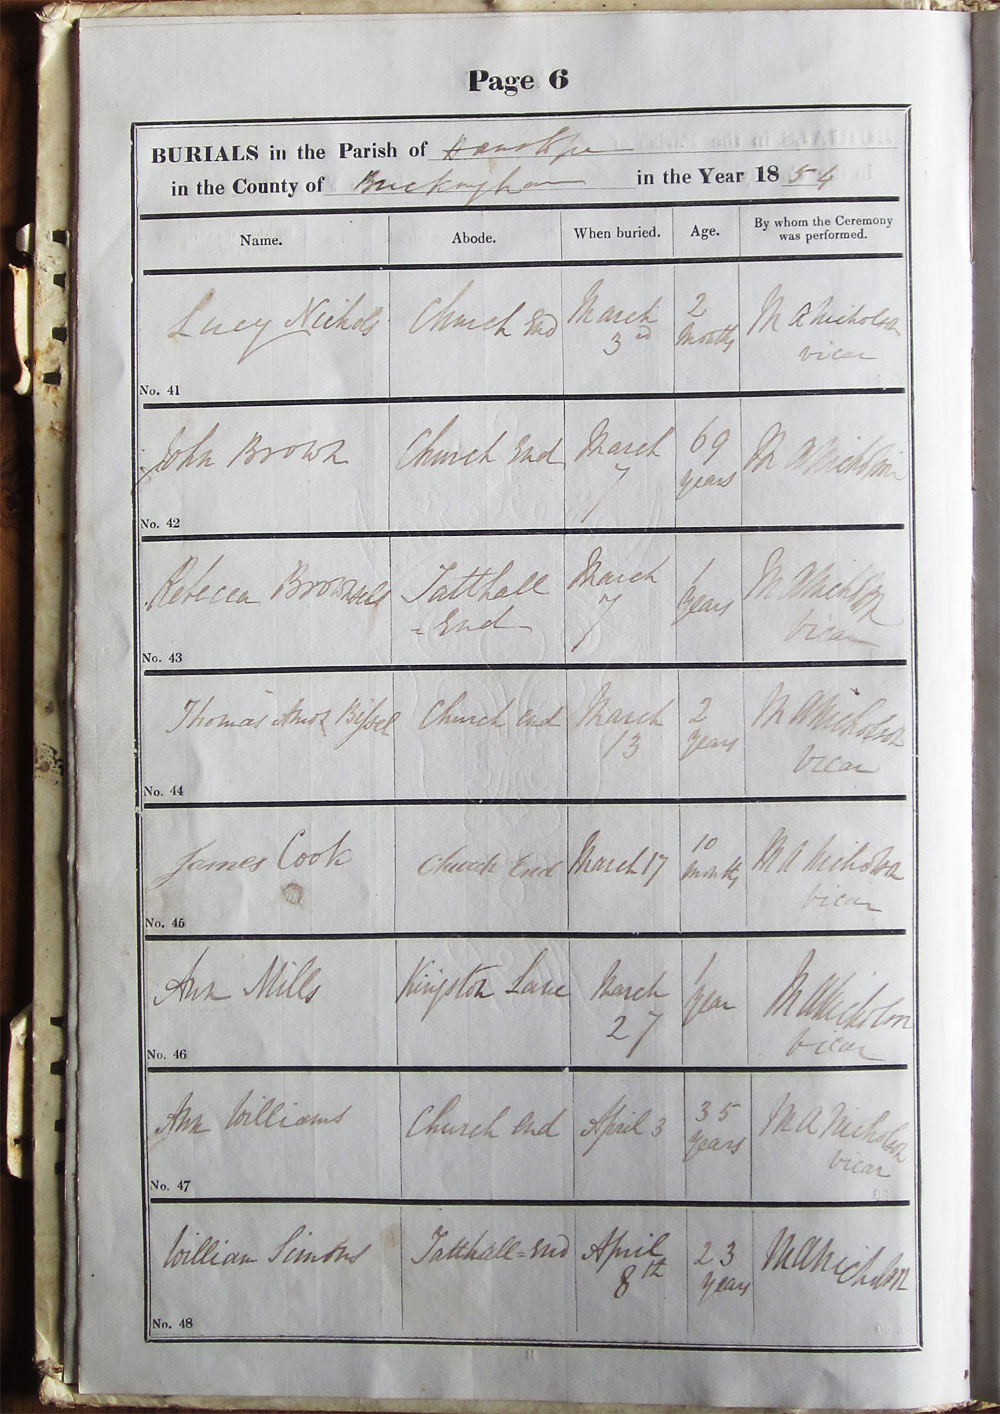 Page 6
BURIALS in the Parish of Hanslope
in the County of Buckingham in the Year 1854
Name. Abode. When buried. Age. By whom the Ceremony was performed.
Lucy Nichols Church End March 3rd 2 Months M A Nicholson vicar
No. 41
John Brown Church End March 7 69 years M A Nicholson
No. 42
Rebecca Tatthall = End March 7 1 years M A Nicholson Vicar
No. 43
Thomas Amos Bissel Church end March 13 2 years M A Nicholson Vicar
No. 44
James Cook Church End March 17 10 months M A Nicholson vicar
No. 45
Ann Mills Kingston Lane March 27 1 year M A Nicholson vicar
No. 46
Ann Williams Church end April 3 35 years M A Nicholson vicar
No. 47
William Simons Tatthall=End April 8th 23 years M A Nicholson
No. 48